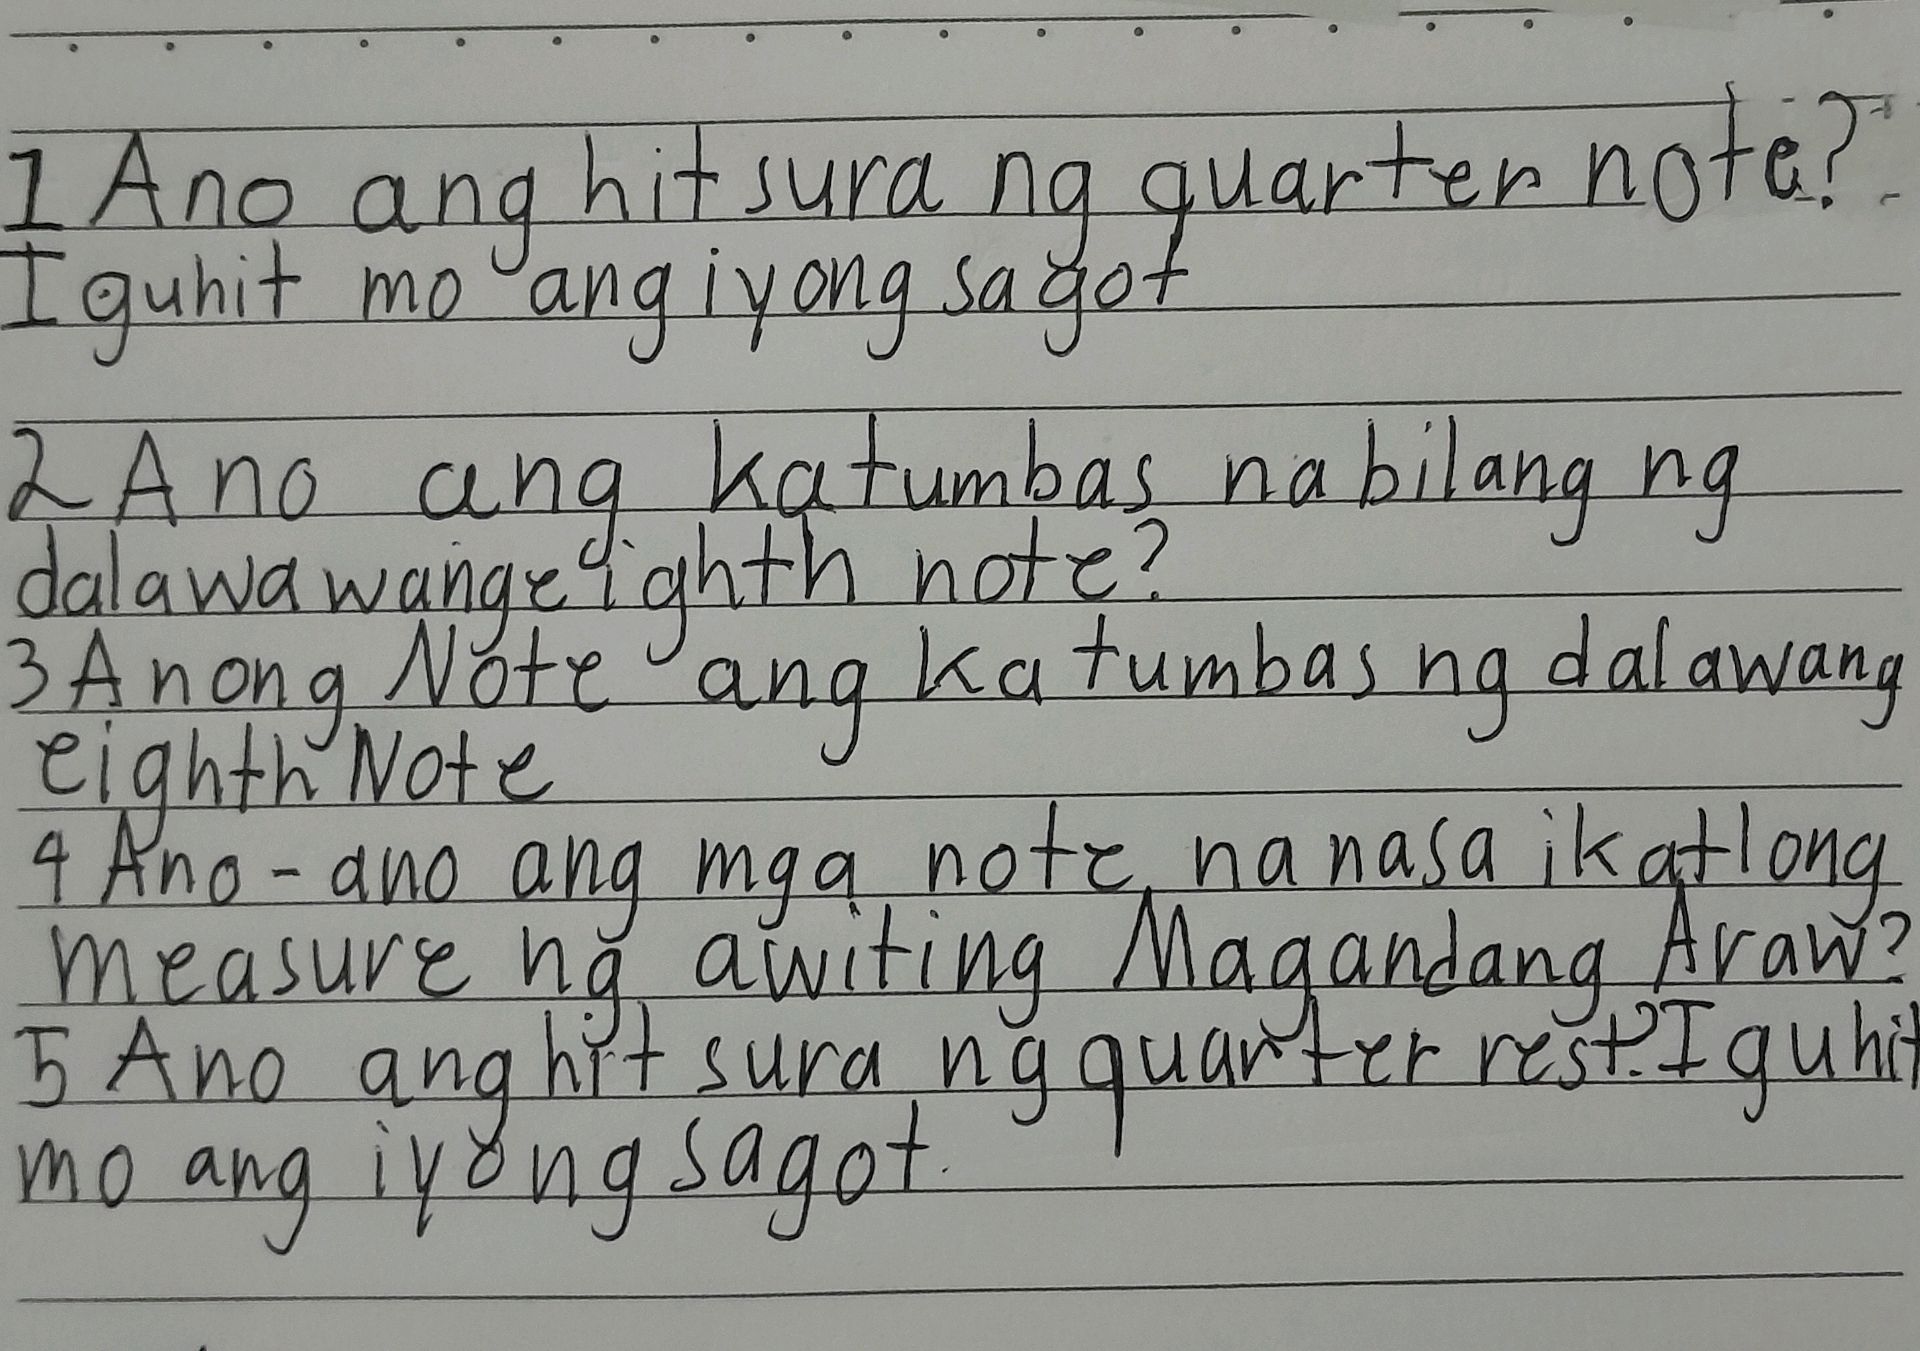 1 Ano ang hitsura ng quarter note?
Iguhit mo ang iyong sagot
2 Ano ang katumbas na bilang ng
dalawawang eighth note?
3 Anong Note ang katumbas ng dalawang
eighth Note
4 Ano-ano ang mga note na nasa ikatlong
measure ng awiting Magandang Araw?
5 Ano ang hitsura ng quarter rest? Iguhit
mo ang iyong sagot.